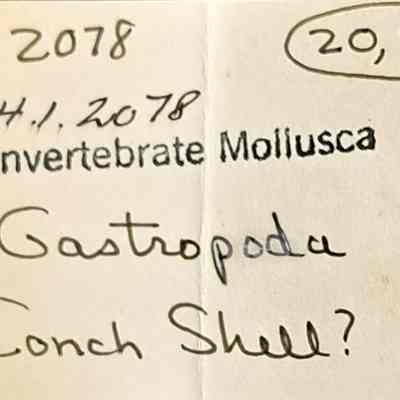 2078 20,
4.1.2078
nvertebrate Mollusca
Gastropoda
Conch Shell?